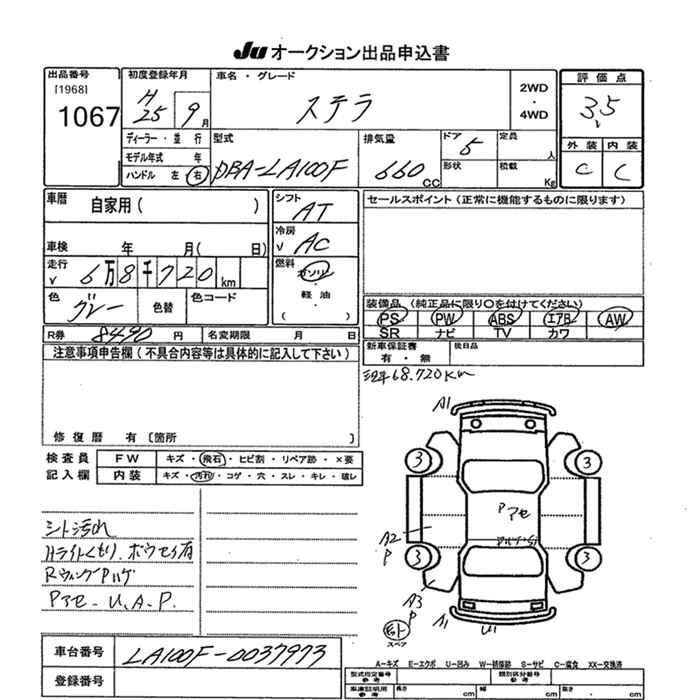 JU オークション出品申込書
出品番号
[1968]
1067
初度登録年月
H25 9月
車名・グレード
ステラ
2WD
・
4WD
評価点
3.5
外装 内装
C C
ディーラー・並行
モデル年式 年
ハンドル 左 右
型式
DBA-LA100F
排気量
660 CC
ドア 5
形状
定員 人
積載 Kg
車歴 自家用( )
車検 年 月( 日)
走行 6万8千720km
色 グレー 色替 色コード
シフト
AT
冷房
AC
燃料
ガソリン
・
軽油
( )
セールスポイント(正常に機能するものに限ります)
装備品 (純正品に限り○を付けてください)
PS PW ABS エアB AW
SR ナビ TV カワ
R券 8490円 名変期限 月 日
新車保証書 有・無
後日品
注意事項申告欄(不具合内容等は具体的に記入して下さい)
68.720Km
修復歴 有 [箇所 ]
検査員
記入欄
FW キズ・飛石・ヒビ割・リペア跡・×要
内装 キズ・汚れ・コゲ・穴・スレ・キレ・破レ
シト汚れ
Hライトくもり、ボウセイ有
RウィングPハゲ
Pアセ-U.A.P.
A1
3 3
P
アセ
A2
P
3 3
A3
P
A1
U1
スペア
車台番号 LA100F-0037973
登録番号
A-キズ E-エクボ U-凹み W-補修跡 S-サビ C-腐食 XX-交換済
型式指定番号
参考
類別区分番号
参考
車庫証明用
参考
長さ cm 幅 cm 高さ cm